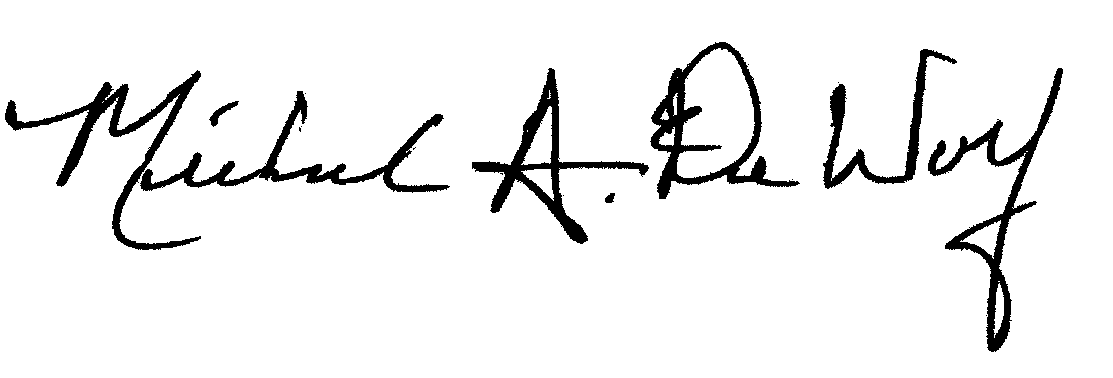 Michael A. DeWolf